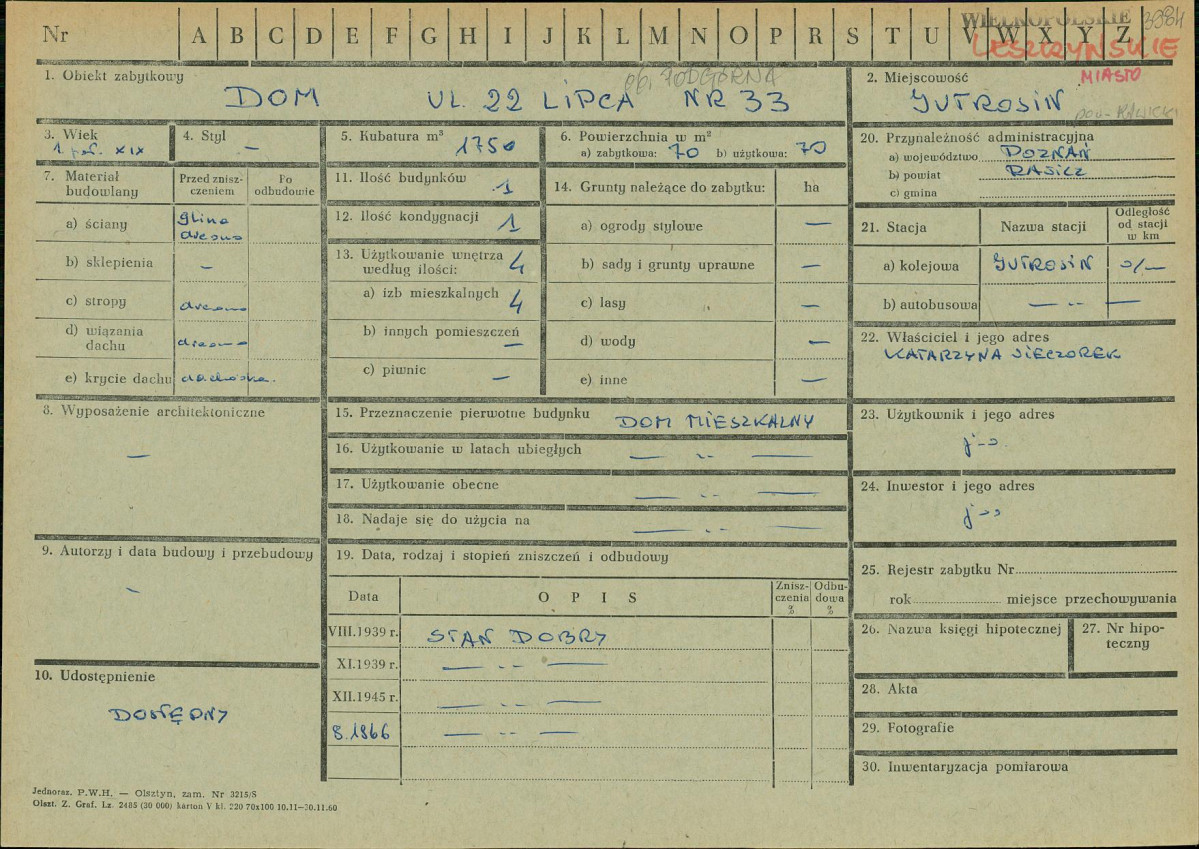 Nr A B C D E F G H I J K L M N O P R S T U V W X Y Z
WIELKOPOLSKIE 3984
LESZCZYŃSKIE
MIASTO
1. Obiekt zabytkowy
ob. PODGÓRNA
DOM UL. 22 LIPCA NR 33
2. Miejscowość
JUTROSIN
pow. RAWICKI
3. Wiek
1 poł. XIX
4. Styl
—
5. Kubatura m³ 1750
6. Powierzchnia w m²
a) zabytkowa: 70 b) użytkowa: 70
20. Przynależność administracyjna
a) województwo POZNAŃ
b) powiat RAWICZ
c) gmina
7. Materiał budowlany
Przed zniszczeniem
Po odbudowie
a) ściany glina drewno
b) sklepienia —
c) stropy drewno
d) wiązania dachu drewno
e) krycie dachu dachówka.
11. Ilość budynków 1
12. Ilość kondygnacji 1
13. Użytkowanie wnętrza według ilości: 4
a) izb mieszkalnych 4
b) innych pomieszczeń —
c) piwnic —
14. Grunty należące do zabytku: ha
a) ogrody stylowe —
b) sady i grunty uprawne —
c) lasy —
d) wody —
e) inne —
21. Stacja Nazwa stacji Odległość od stacji w km
a) kolejowa JUTROSIN
b) autobusowa — „ —
22. Właściciel i jego adres
KATARZYNA WIECZOREK
8. Wyposażenie architektoniczne
—
15. Przeznaczenie pierwotne budynku DOM MIESZKALNY
16. Użytkowanie w latach ubiegłych — „ —
17. Użytkowanie obecne — „ —
18. Nadaje się do użycia na — „ —
23. Użytkownik i jego adres
24. Inwestor i jego adres
9. Autorzy i data budowy i przebudowy
—
19. Data, rodzaj i stopień zniszczeń i odbudowy
Data OPIS Zniszczenia % Odbudowa %
VIII.1939 r. STAN DOBRY
XI.1939 r. — „ —
XII.1945 r. — „ —
8.1966 — „ —
25. Rejestr zabytku Nr
rok miejsce przechowywania
26. Nazwa księgi hipotecznej
27. Nr hipoteczny
10. Udostępnienie
DOSTĘPNY
28. Akta
29. Fotografie
30. Inwentaryzacja pomiarowa
Jednoraz. P.W.H. — Olsztyn, zam. Nr 3215/S
Olszt. Z. Graf. Lz. 2485 (30 000) karton V kl. 220 70x100 10.11—30.11.60